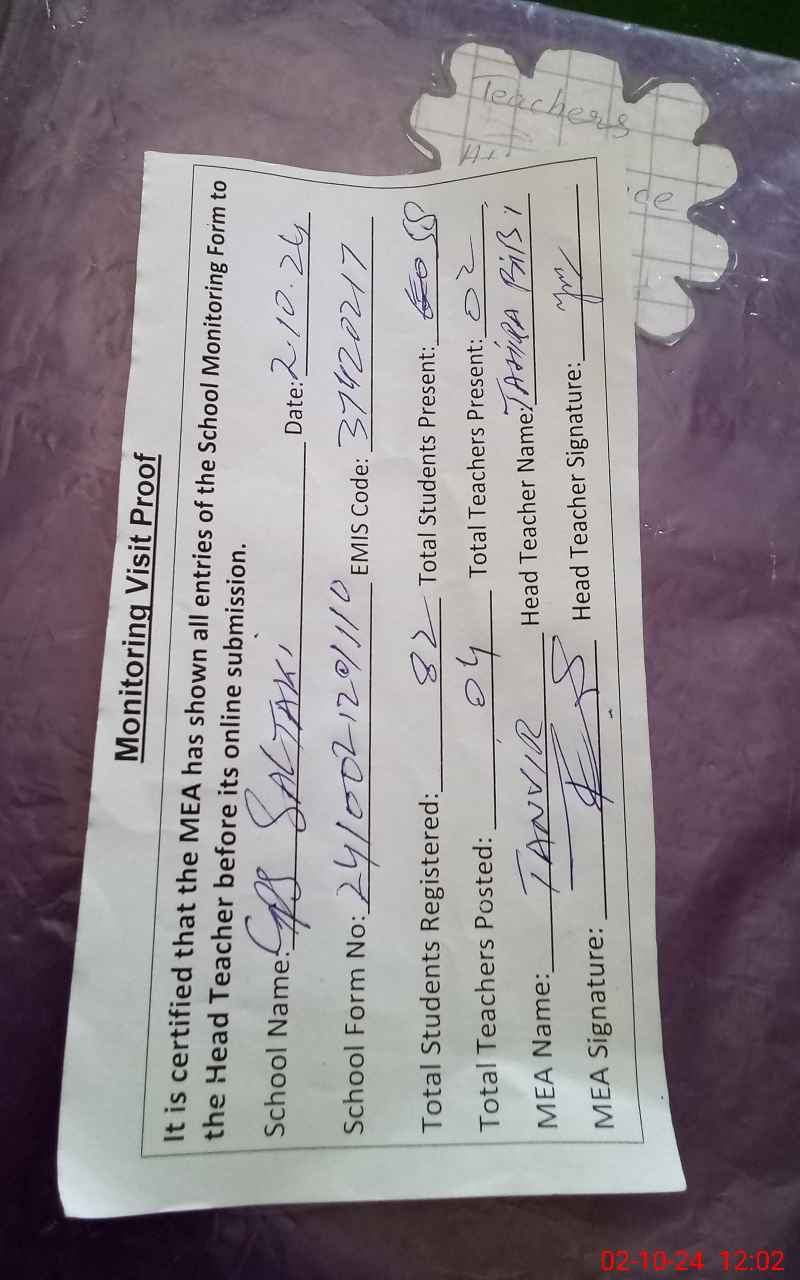 Monitoring Visit Proof
It is certified that the MEA has shown all entries of the School Monitoring Form to
the Head Teacher before its online submission.
School Name: GPS SALTAKI Date: 2.10.24
School Form No: 2410021201110 EMIS Code: 37420217
Total Students Registered: 82 Total Students Present: 58
Total Teachers Posted: 04 Total Teachers Present: 02
MEA Name: TANVIR Head Teacher Name: TAHIRA BIBI
MEA Signature: Head Teacher Signature:
Teachers
02-10-24 12:02